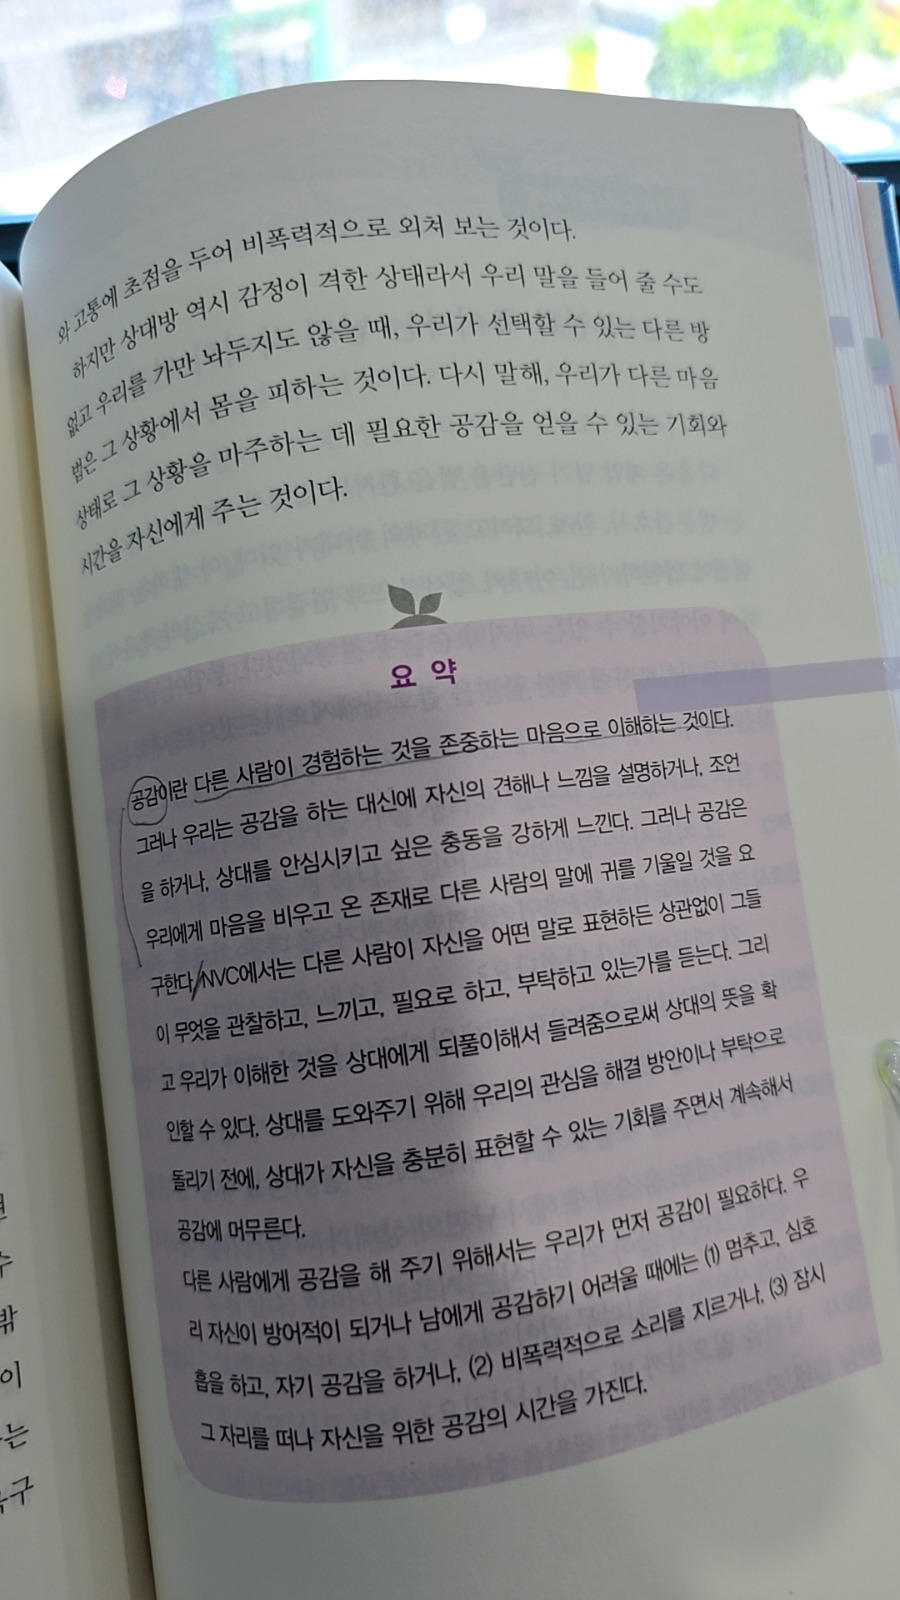 와 고통에 초점을 두어 비폭력적으로 외쳐 보는 것이다.
하지만 상대방 역시 감정이 격한 상태라서 우리 말을 들어 줄 수도
없고 우리를 가만 놔두지도 않을 때, 우리가 선택할 수 있는 다른 방
법은 그 상황에서 몸을 피하는 것이다. 다시 말해, 우리가 다른 마음
상태로 그 상황을 마주하는 데 필요한 공감을 얻을 수 있는 기회와
시간을 자신에게 주는 것이다.
요 약
공감이란 다른 사람이 경험하는 것을 존중하는 마음으로 이해하는 것이다.
그러나 우리는 공감을 하는 대신에 자신의 견해나 느낌을 설명하거나, 조언
을 하거나, 상대를 안심시키고 싶은 충동을 강하게 느낀다. 그러나 공감은
우리에게 마음을 비우고 온 존재로 다른 사람의 말에 귀를 기울일 것을 요
구한다. NVC에서는 다른 사람이 자신을 어떤 말로 표현하든 상관없이 그들
이 무엇을 관찰하고, 느끼고, 필요로 하고, 부탁하고 있는가를 듣는다. 그리
고 우리가 이해한 것을 상대에게 되풀이해서 들려줌으로써 상대의 뜻을 확
인할 수 있다. 상대를 도와주기 위해 우리의 관심을 해결 방안이나 부탁으로
돌리기 전에, 상대가 자신을 충분히 표현할 수 있는 기회를 주면서 계속해서
공감에 머무른다.
다른 사람에게 공감을 해 주기 위해서는 우리가 먼저 공감이 필요하다. 우
리 자신이 방어적이 되거나 남에게 공감하기 어려울 때에는 (1) 멈추고, 심호
흡을 하고, 자기 공감을 하거나, (2) 비폭력적으로 소리를 지르거나, (3) 잠시
그 자리를 떠나 자신을 위한 공감의 시간을 가진다.
수
밖
이
는
구